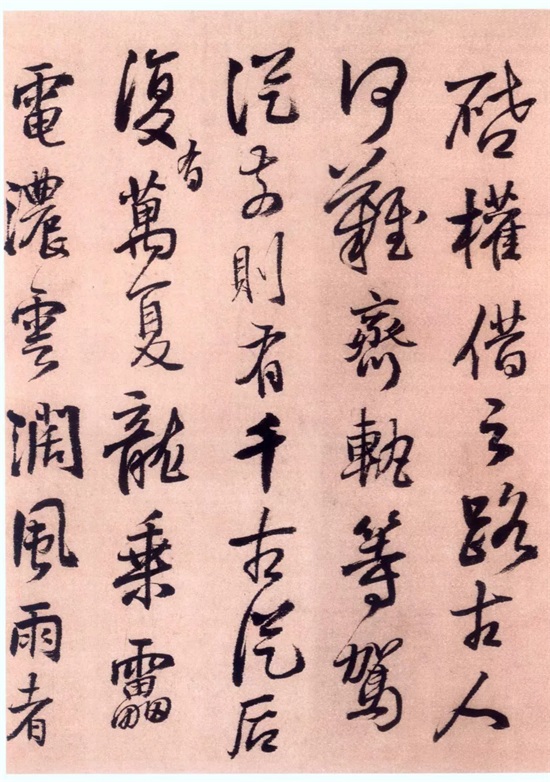 啓權借之路古人
何難齊軌等駕
從前則有千古從后
復有萬夏龍乘靁
電濃雲濶風雨者